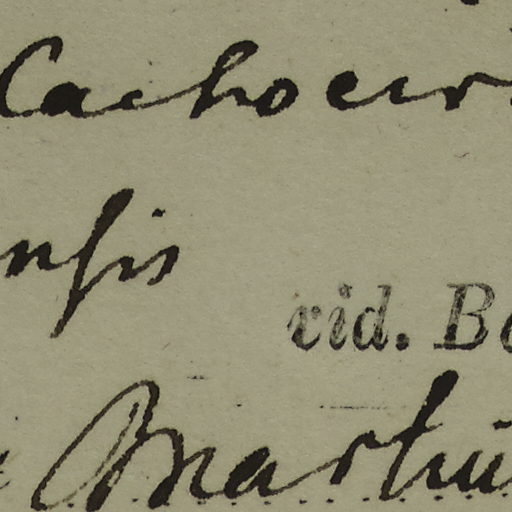 Cachoeir
nsis
vid. Be
Martiu